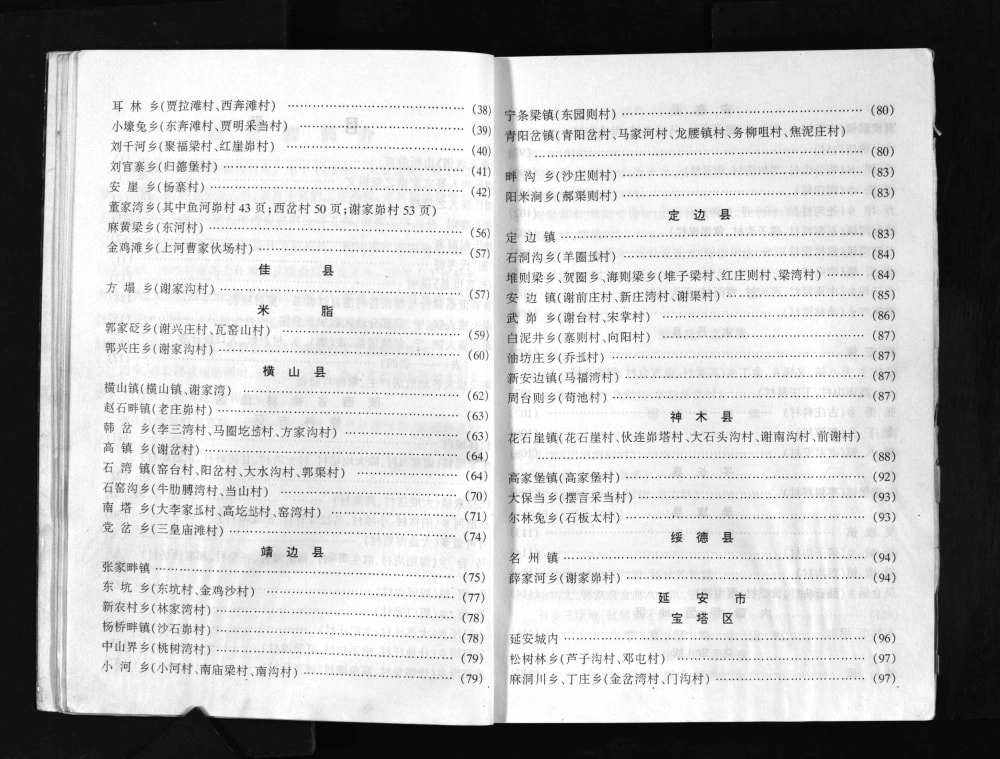 耳林乡(贾拉滩村、西奔滩村) …… (38)
小壕兔乡(东奔滩村、贾明采当村) …… (39)
刘千河乡(聚福梁村、红崖峁村) …… (40)
刘官寨乡(归德堡村) …… (41)
安崖乡(杨寨村) …… (42)
董家湾乡(其中鱼河峁村43页;西岔村50页;谢家峁村53页)
麻黄梁乡(东河村) …… (56)
金鸡滩乡(上河曹家伙场村) …… (57)
佳县
方塌乡(谢家沟村) …… (57)
米脂
郭家砭乡(谢兴庄村、瓦窑山村) …… (59)
郭兴庄乡(谢家沟村) …… (60)
横山县
横山镇(横山镇、谢家湾) …… (62)
赵石畔镇(老庄峁村) …… (63)
韩岔乡(李三湾村、马圈圪村、方家沟村) …… (63)
高镇乡(谢岔村) …… (64)
石湾镇(窑台村、阳岔村、大水沟村、郭渠村) …… (64)
石窑沟乡(牛肋膊湾村、当山村) …… (70)
南塔乡(大李家村、高圪村、窑湾村) …… (71)
党岔乡(三皇庙滩村) …… (74)
靖边县
张家畔镇 …… (75)
东坑乡(东坑村、金鸡沙村) …… (77)
新农村乡(林家湾村) …… (78)
杨桥畔镇(沙石峁村) …… (78)
中山界乡(桃树湾村) …… (79)
小河乡(小河村、南庙梁村、南沟村) …… (79)
宁条梁镇(东园则村) …… (80)
青阳岔镇(青阳岔村、马家河村、龙腰镇村、务柳咀村、焦泥庄村)
…… (80)
畔沟乡(沙庄则村) …… (83)
阳米涧乡(郝渠则村) …… (83)
定边县
定边镇 …… (83)
石洞沟乡(羊圈村) …… (84)
堆则梁乡、贺圈乡、海则梁乡(堆子梁村、红庄则村、梁湾村) …… (84)
安边镇(谢前庄村、新庄湾村、谢渠村) …… (85)
武峁乡(谢台村、宋掌村) …… (86)
白泥井乡(寨则村、向阳村) …… (87)
油坊庄乡(乔村) …… (87)
新安边镇(马福湾村) …… (87)
周台则乡(苟池村) …… (87)
神木县
花石崖镇(花石崖村、伙连峁塔村、大石头沟村、谢南沟村、前谢村)
…… (88)
高家堡镇(高家堡村) …… (92)
大保当乡(摆言采当村) …… (93)
尔林兔乡(石板太村) …… (93)
绥德县
名州镇 …… (94)
薛家河乡(谢家峁村) …… (94)
延安市
宝塔区
延安城内 …… (96)
松树林乡(芦子沟村、邓屯村) …… (97)
麻洞川乡、丁庄乡(金岔湾村、门沟村) …… (97)